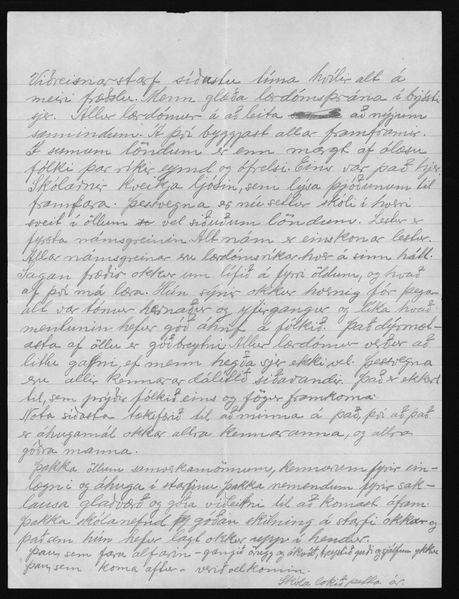 Viðreisnarstarf síðustu tíma hvílir alt á
meiri fræðslu. Menn glæða lærdómsþrána í brjósti
sjer. Allur lærdómur á að leita að nýjum
sannindum. Á því byggjast allar framfarir.
Í sumum löndum er enn margt af ólæsu
fólki þar ríkir eymd og ófrelsi. Eins var það hjer.
Skólarnir kveikja ljósin, sem lýsa þjóðunum til
framfara. Þessvegna er nú settur skóli í hverri
sveit í öllum vel siðuðum löndum. Lestur er
fyrsta námsgreinin. Alt nám er einskonar lestur.
Allar námsgreinar eru lærdómsríkar hver á sinn hátt.
Sagan fræðir okkur um lífið á fyrri öldum, og hvað
af því má læra. Hún sýnir okkur hvernig fór þegar
alt var tómur hernaður og yfirgangur og líka hvað
mentunin hefur góð áhrif á fólkið. Það dýrmæt-
asta af öllu er góð breytni. Allur lærdómur verður að
litlu gagni, ef menn hegða sjer ekki vel. Þessvegna
eru allir kennarar dálítið siðavandir. Það er ekkert
til, sem prýðir fólkið eins og fögur framkoma.
Nota síðasta tækifærið til að minna á það, því að það
er áhugamál okkar allra kennaranna, og allra
góðra manna.
Þakka öllum samverkamönnum, kennurum fyrir ein-
lægni og áhuga í starfinu þakka nemendum fyrir sak-
lausa glaðværð og góða viðleitni til að komast áfram
Þakka skólanefnd góðan skilning á starfi okkar og
það sem hún hefur lagt okkur uppí í hendur.
Þau, sem fara alfarin - gangið örugg og ókvíðin,
Þau, sem koma aftur - verið velkomin.
Skóla lokið þetta ár.